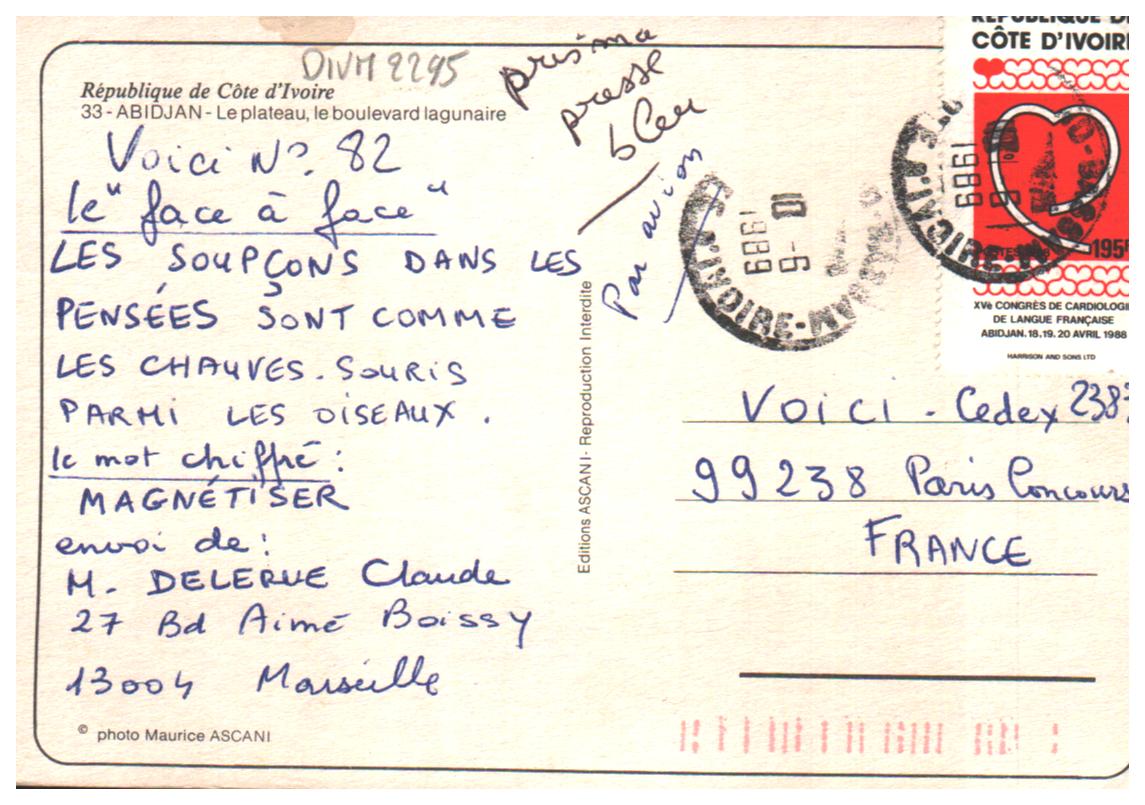 DIVM 2295
République de Côte d'Ivoire
33 - ABIDJAN - Le plateau, le boulevard lagunaire
Voici No. 82
le "face à face"
LES SOUPÇONS DANS LES
PENSÉES SONT COMME
LES CHAUVES-SOURIS
PARMI LES OISEAUX.
le mot chiffré :
MAGNÉTISER
envoi de :
M. DELERUE Claude
27 Bd Aimé Boissy
13004 Marseille
© photo Maurice ASCANI
Editions ASCANI - Reproduction Interdite
prisma
presse
Par avion
D'IVOIRE
10
-6
1989
D'IVOIRE
-6
1989
RÉPUBLIQUE DE
CÔTE D'IVOIRE
195F
XVè CONGRÈS DE CARDIOLOGIE
DE LANGUE FRANÇAISE
ABIDJAN. 18. 19. 20 AVRIL 1988
HARRISON AND SONS LTD
VOICI - Cedex 2383
99238 Paris Concours
FRANCE